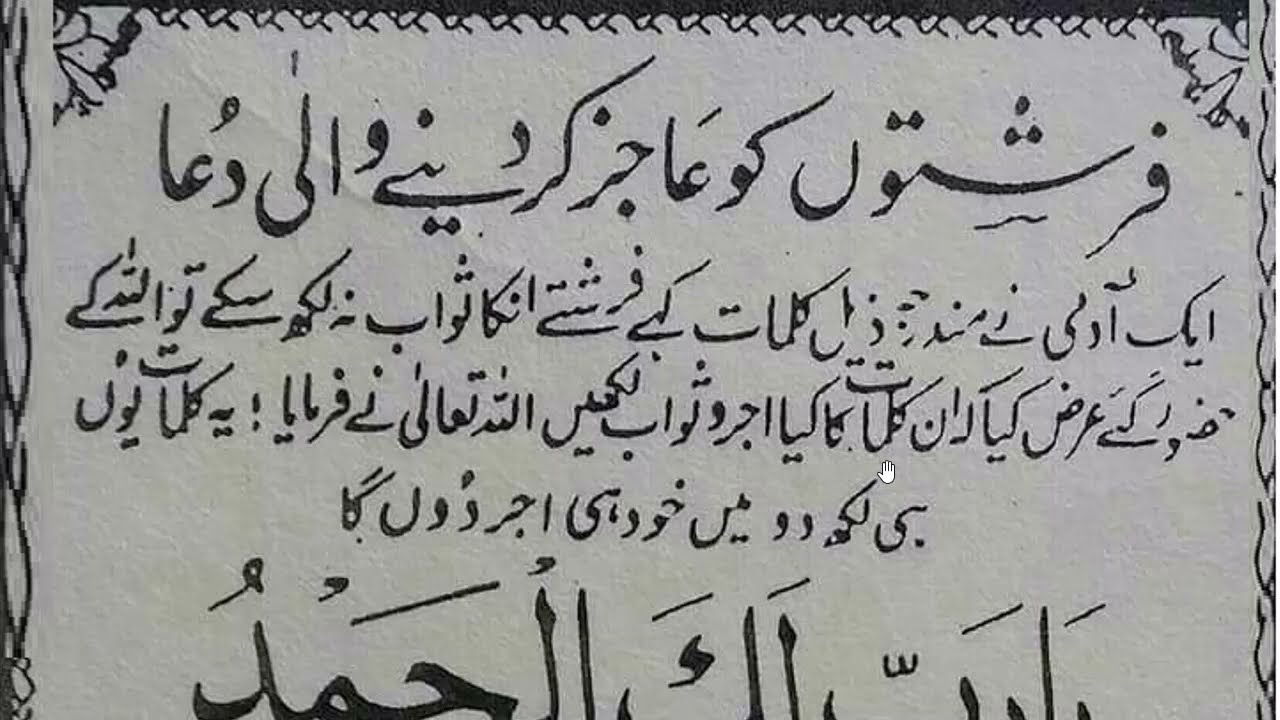 فرشتوں کو عاجز کر دینے والی دُعا
ایک آدمی نے مندرجہ ذیل کلمات کہے فرشتے انکا ثواب نہ لکھ سکے تو اللہ کے
حضور گئے عرض کیا کہ ان کلمات کا کیا اجر و ثواب لکھیں اللہ تعالیٰ نے فرمایا ! یہ کلمات یوں
ہی لکھ دو میں خود ہی اجر دُوں گا
يَا رَبِّ لَكَ الْحَمْدُ